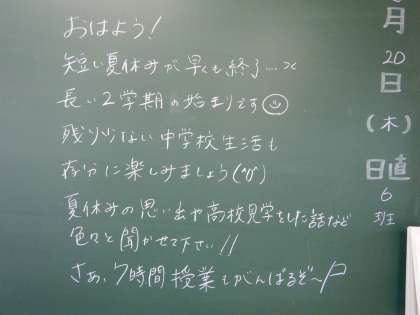 おはよう!
短い夏休みが早くも終了…×
長い2学期の始まりです☺
残り少ない中学校生活も
存分に楽しみましょう(^o^)
夏休みの思い出や高校見学をした話など
色々と聞かせて下さい!!
さぁ、7時間授業もがんばるぞ〜
月
20
日
(木)
日直
6
班